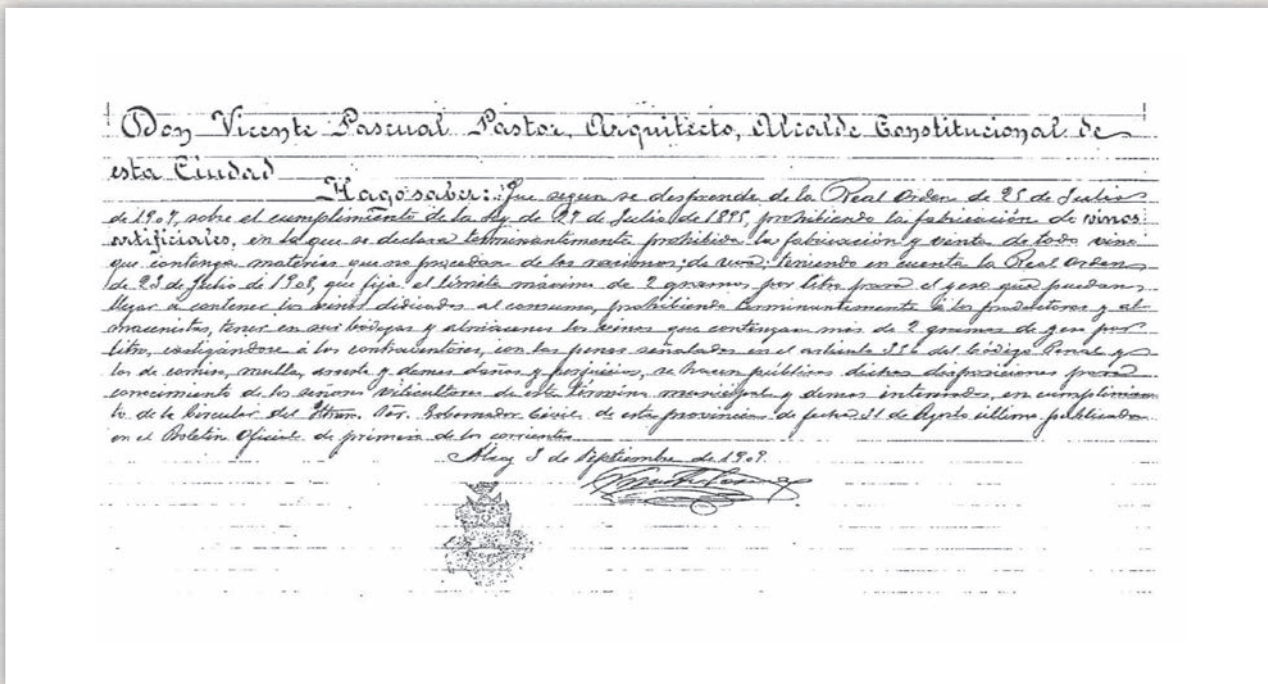 Don Vicente Pascual Pastor, Arquitecto, Alcalde Constitucional de
esta Ciudad
Hago saber: Que segun se desprende de la Real Orden de 25 de Julio
de 1907, sobre el cumplimiento de la ley de 27 de Julio de 1895, prohibiendo la fabricación de vinos
artificiales, en la que se declara terminantemente prohibida la fabricación y venta de todo vino
que contenga materias que no procedan de los racimos de uva; teniendo en cuenta la Real orden
de 23 de Julio de 1908, que fija el límite máximo de 2 gramos por litro para el yeso que puedan
llegar a contener los vinos dedicados al consumo, prohibiendo terminantemente á los productores y al
macenistas, tener en sus bodegas y almacenes los vinos que contengan más de 2 gramos de yeso por
litro, castigándose á los contraventores, con las penas señaladas en el artículo 356 del Código Penal y
los de comiso, multa, arresto y demas daños y perjuicios, se hacen públicas dichas disposiciones para
conocimiento de los señores viticultores de este término municipal y demas interesados, en cumplimien
to de la Circular del Iltmo. Sor. Gobernador Civil de esta provincia de fecha 31 de Agosto último publicada
en el Boletin Oficial de primero de los corrientes
Alcoy 3 de Septiembre de 1909.
Vicente Pascual